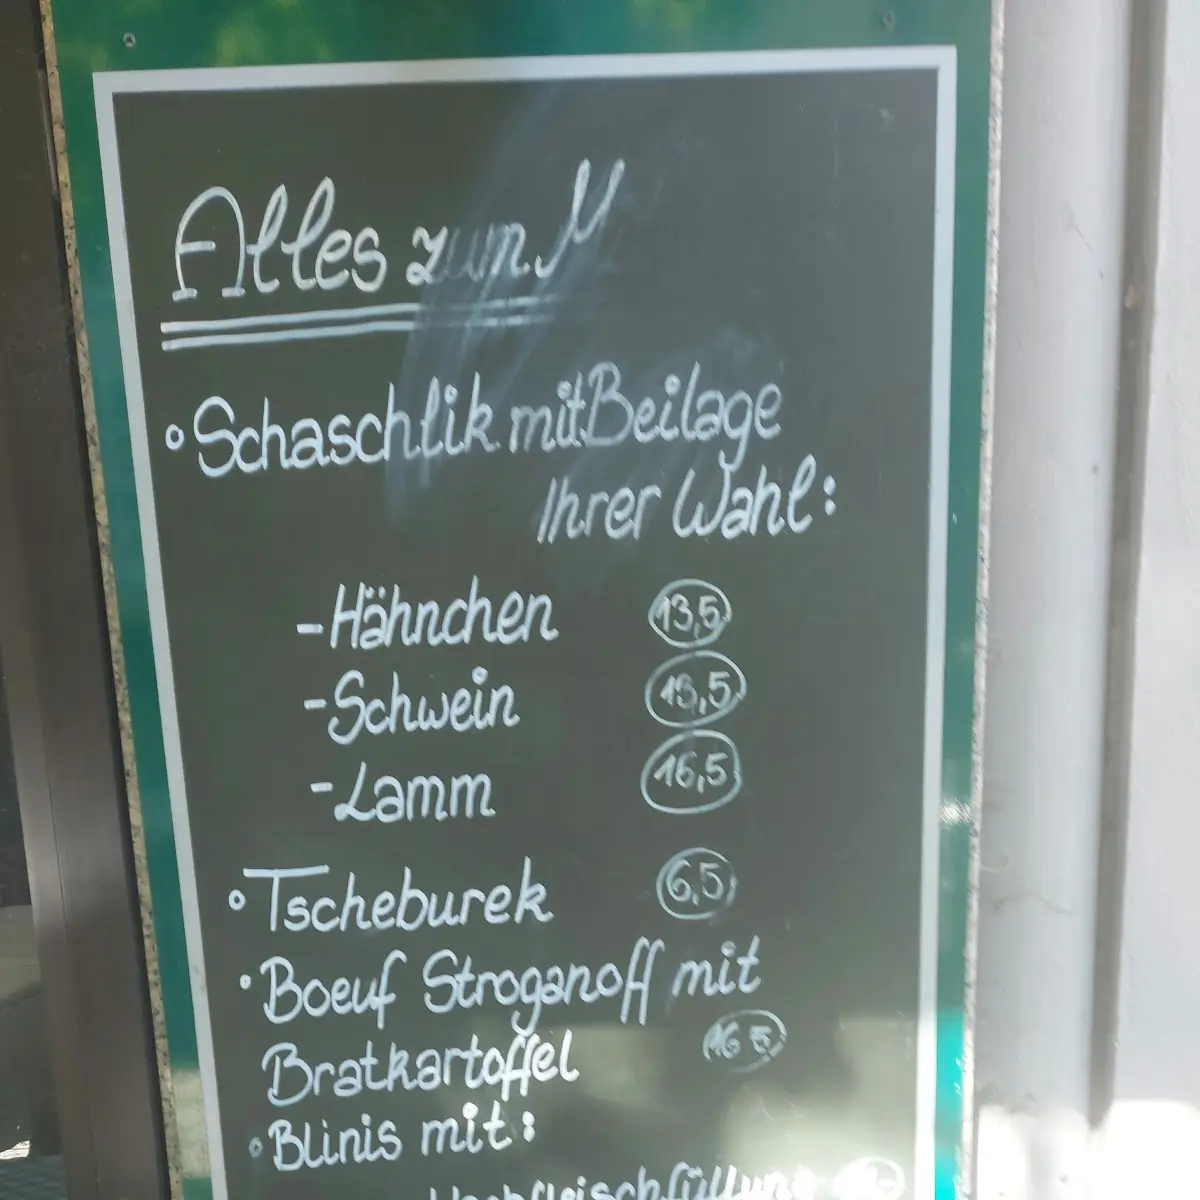 Alles zum M
° Schaschlik mit Beilage
Ihrer Wahl:
- Hähnchen 13,5
- Schwein 13,5
- Lamm 16,5
° Tscheburek 6,5
° Boeuf Stroganoff mit
Bratkartoffel 16 5
° Blinis mit:
Hackfleischfüllung